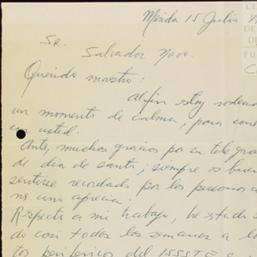 Mérida 15 Julio
Sr.
Salvador Novo.
Querido maestro:
Al fin estoy rodeado
un momento de calma, para
a usted.
Ante, muchas gracias por su
de día de santo, siempre es
sentirse recordado por las personas
nos aprecia.
Respecto a mi trabajo, he estado
do con todas las semanas a
tos periféricos del ISSSTE